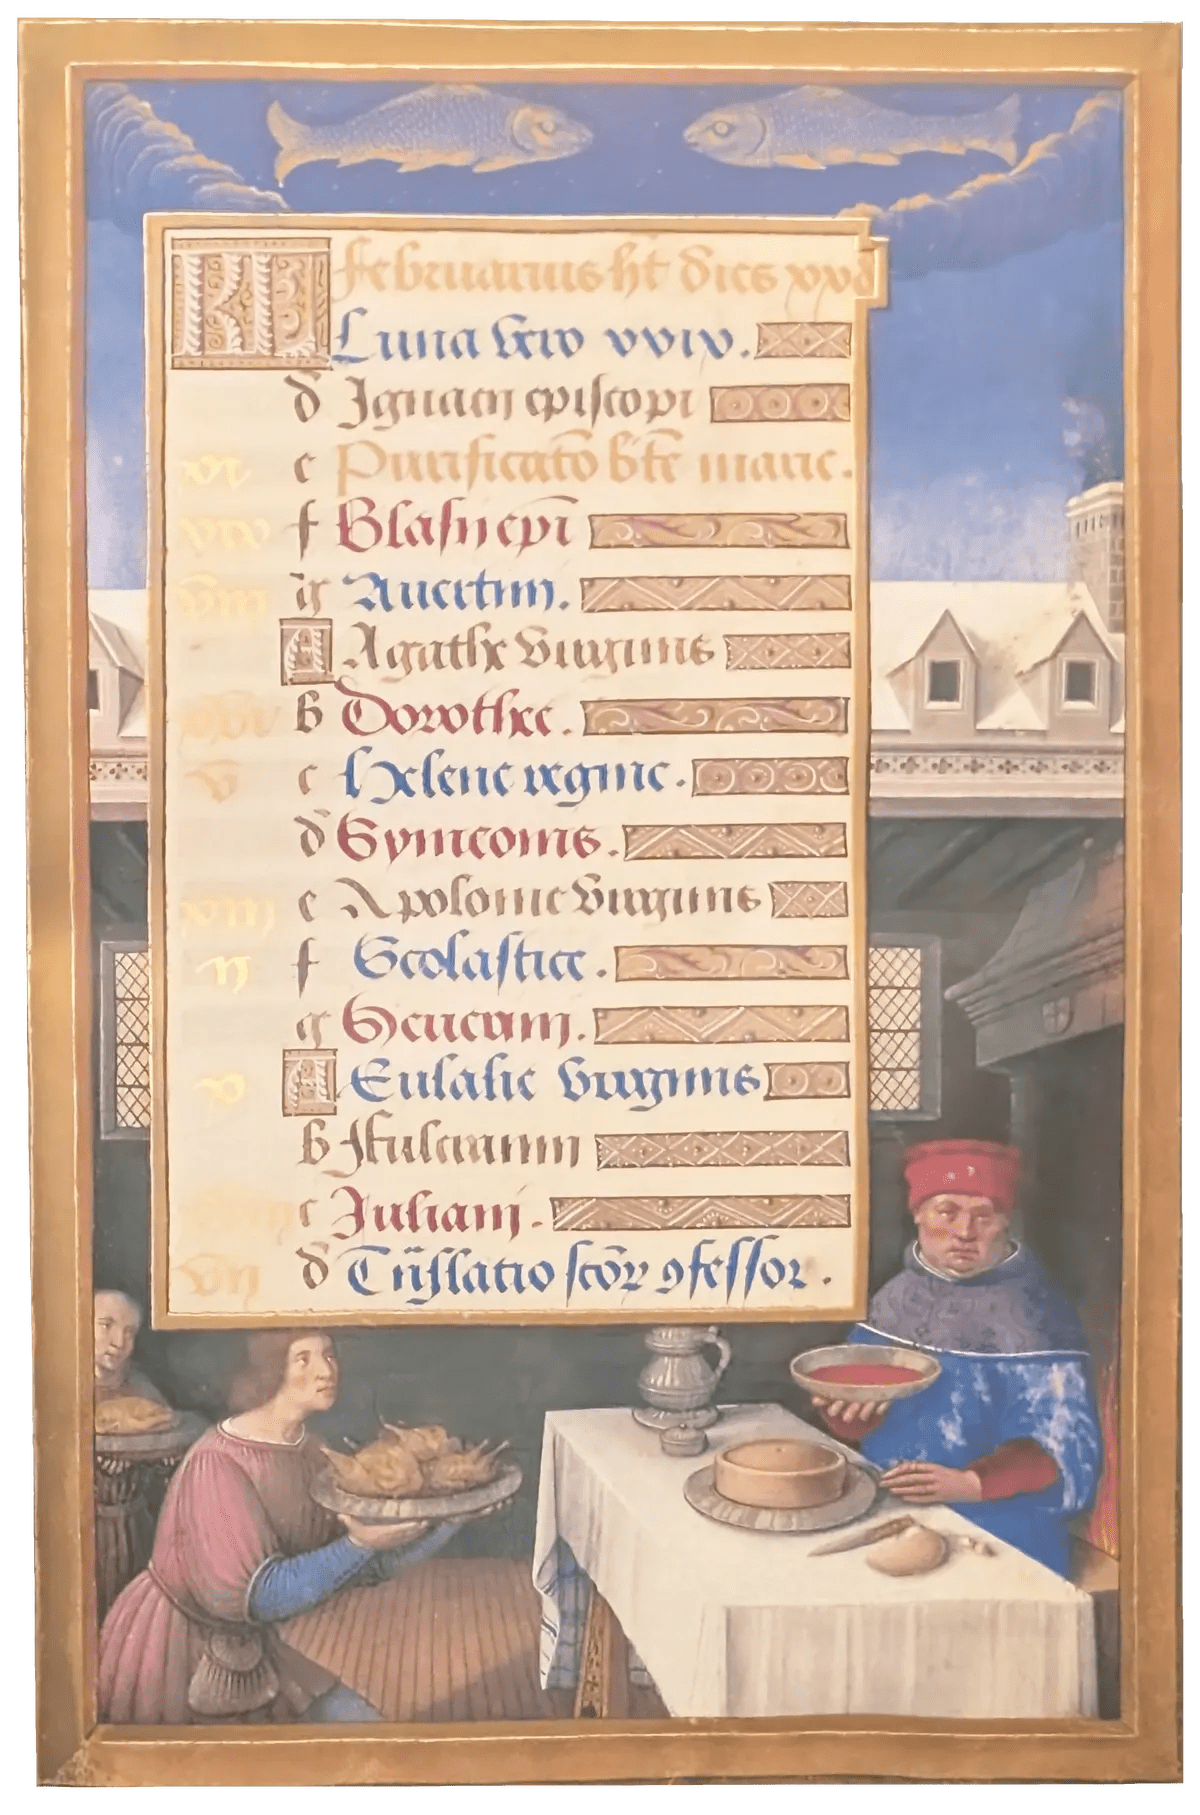 KL februarius ht dies xxviij
Luna vero xxix.
d Ignacij episcopi
xi e Purificato bte marie.
xix f Blasij epi
viij g Auertini.
A Agathe virginis
xvi b Dorothee.
v c Helene regine.
d Symeonis.
xiij e Apolonie virginis
ij f Scolastice.
g
x A Eulalie virginis
b
c Juliani.
vij d Traslatio scor 9fessor.